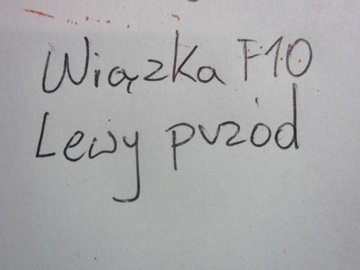 Wiązka F10
Lewy przód